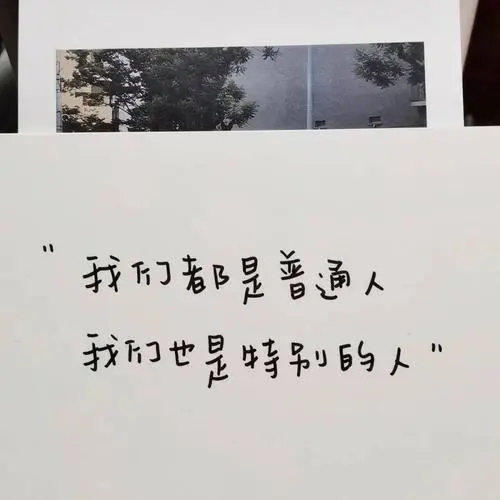 "我们都是普通人
我们也是特别的人"